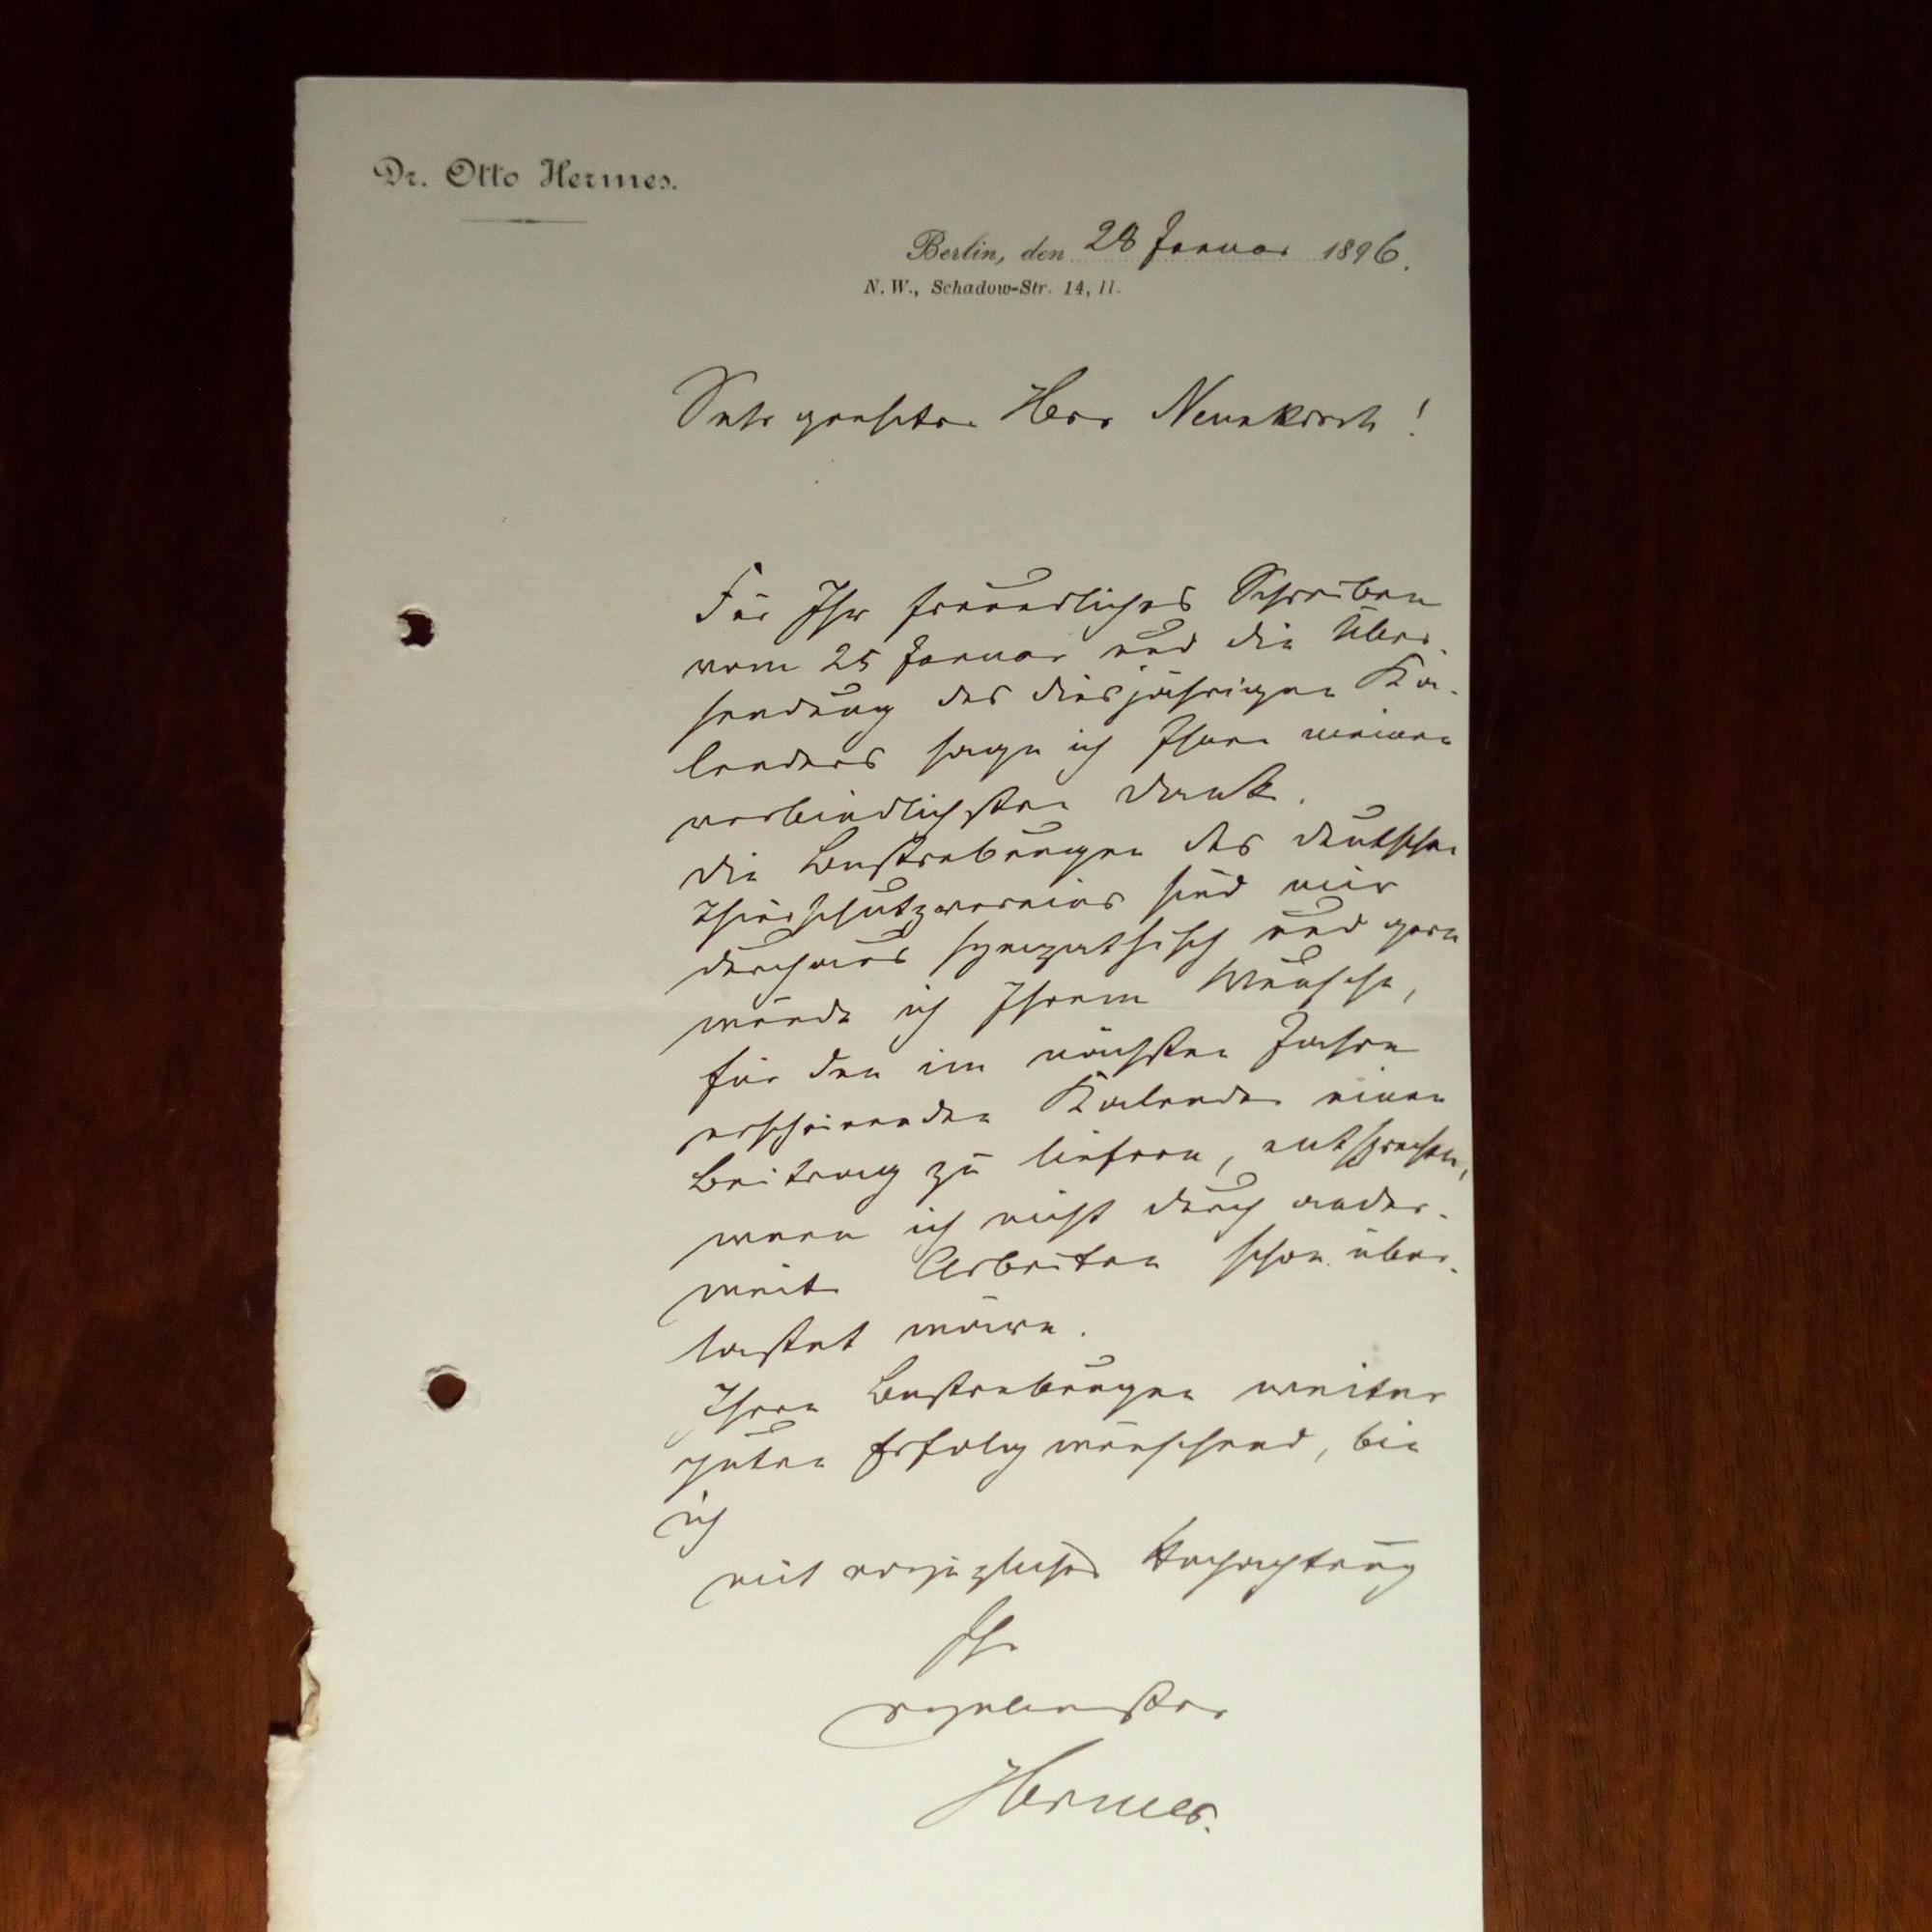 Dr. Otto Hermes.
Berlin, den 28 Januar 1896.
N. W., Schadow-Str. 14, II.
Sehr geehrter Herr Neunkirch!
Für Ihr freundliches Schreiben
vom 25 Januar und die Über-
sendung des diesjährigen Ka-
lenders sage ich Ihnen meinen
verbindlichsten Dank.
Die Bestrebungen des deutschen
Thierschutzvereins sind mir
durchaus sympathisch und gern
würde ich Ihrem Wunsche,
für den im nächsten Jahre
erscheinenden Kalender einen
Beitrag zu liefern, entsprechen,
wenn ich nicht durch ander-
weite Arbeiten schon über-
lastet wäre.
Ihren Bestrebungen weiter
guten Erfolg wünschend, bin
ich
mit vorzüglicher Hochachtung
Ihr
ergebenster
Hermes.